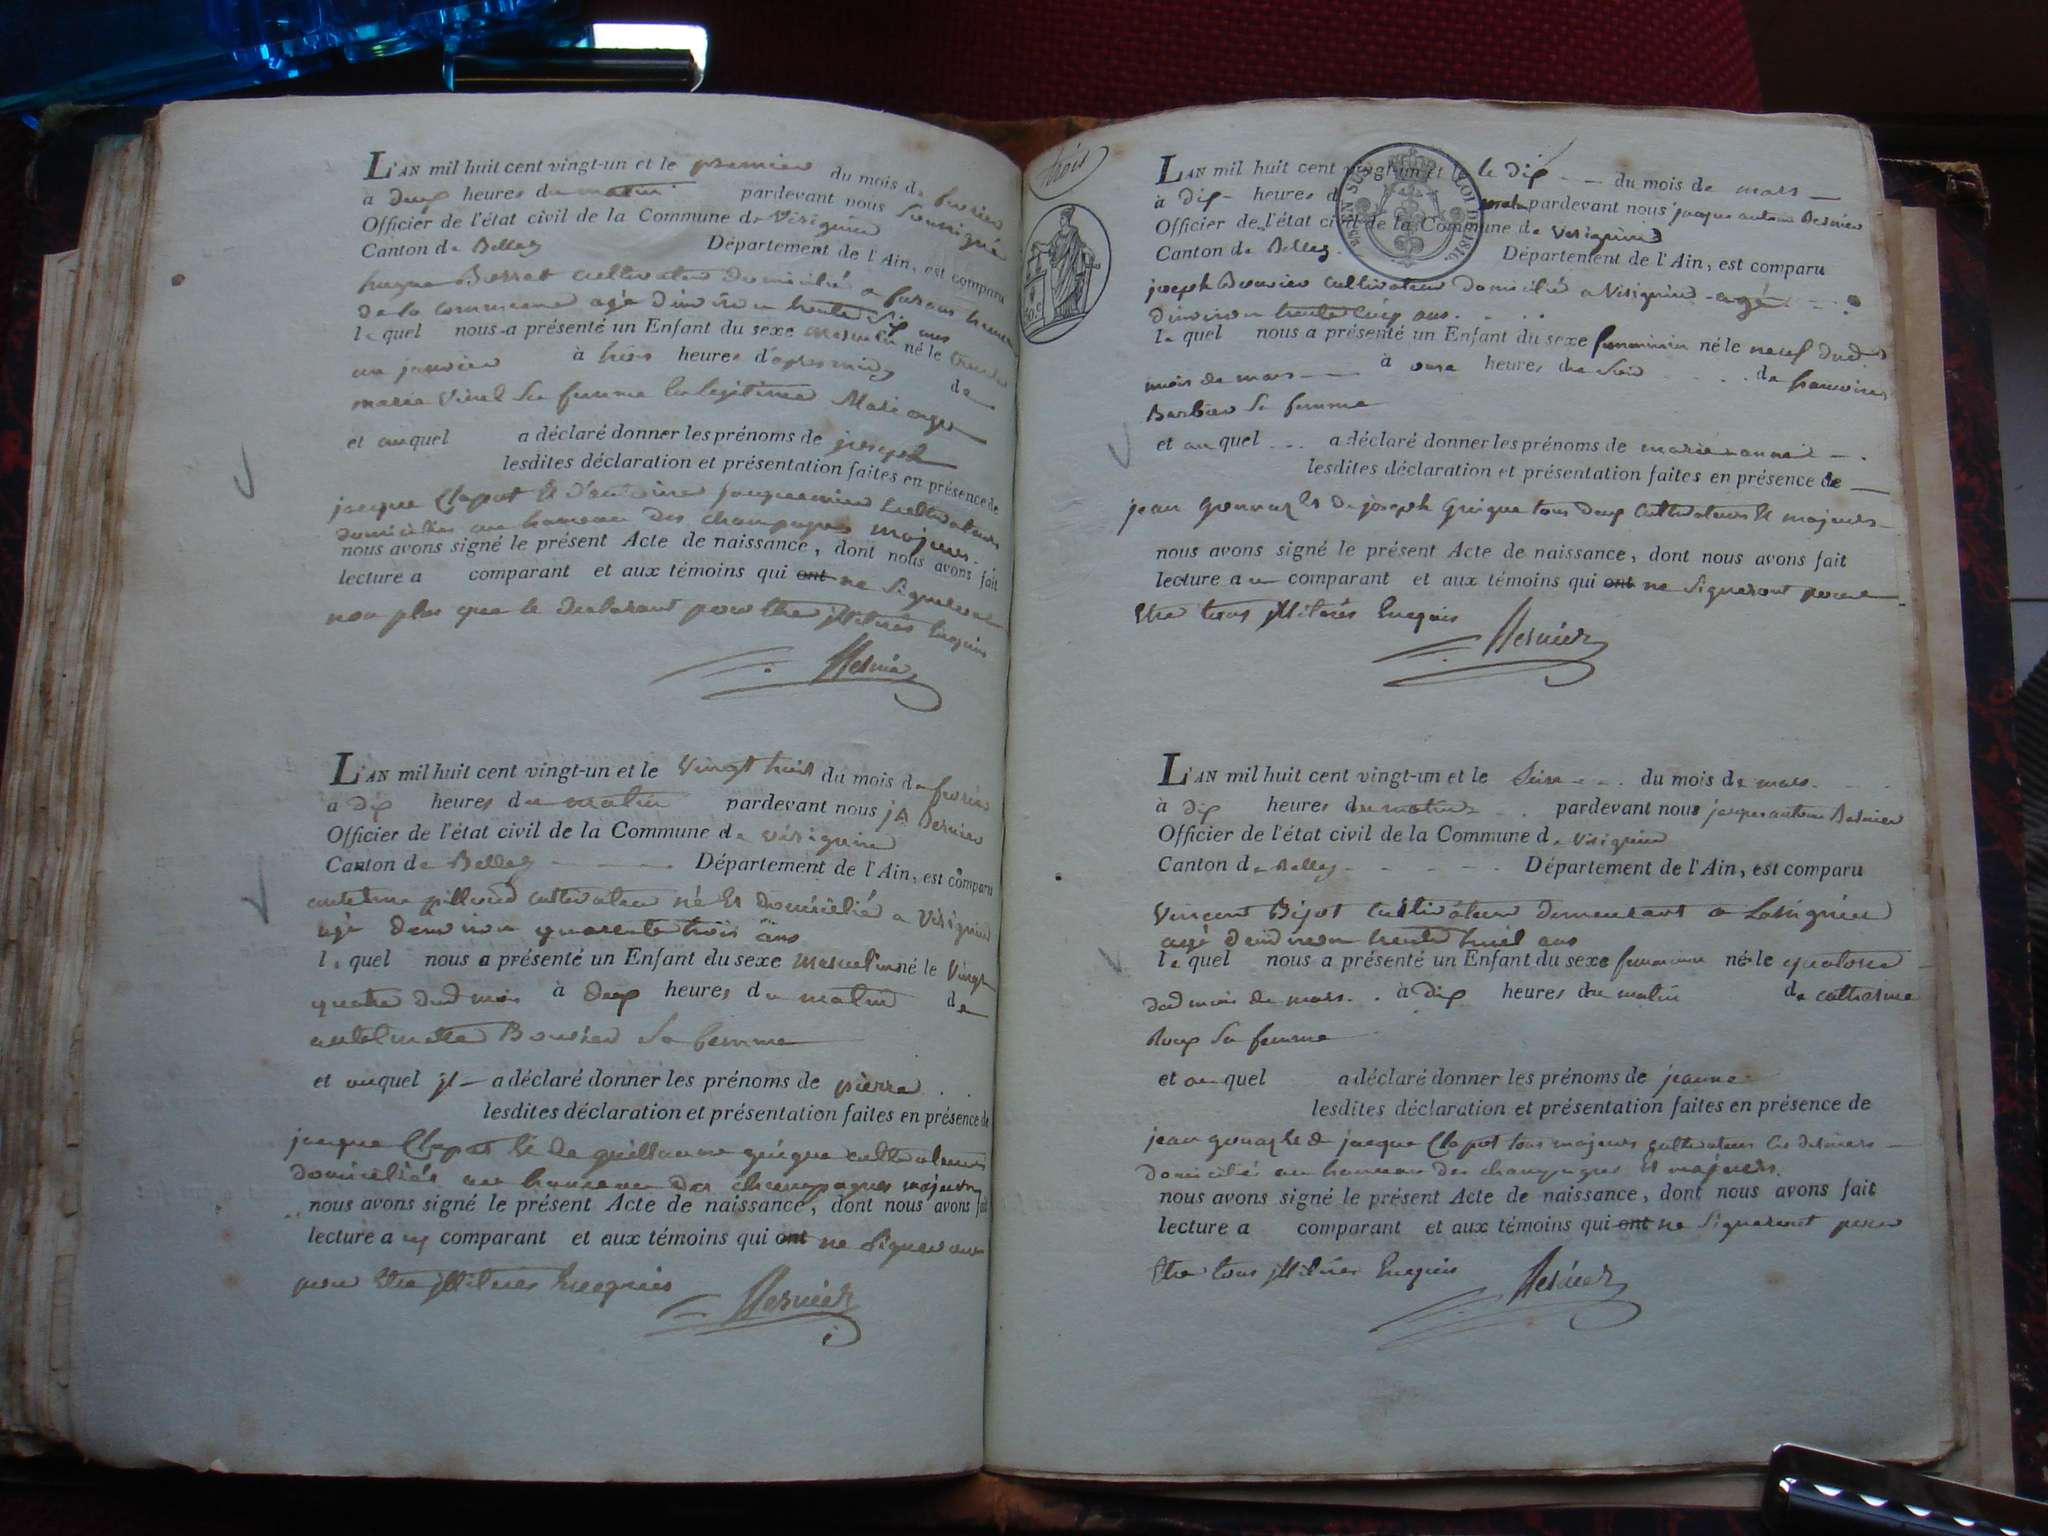 L'AN mil huit cent vingt-un et le premier du mois de fevrier
à deux heures du matin pardevant nous soussigné
Officier de l'état civil de la Commune de Virignin
Canton de Belley Département de l'Ain, est comparu
Borret cultivateur domicilié a
de la commune agé d'environ trente six ans
le quel nous a présenté un Enfant du sexe masculin né le trente
un janvier à trois heures d'apres midy de
marie sa femme
et au quel a déclaré donner les prénoms de joseph
lesdites déclaration et présentation faites en présence de
jacque Clapot & d'antoine jacquemin cultivateurs
domiciliés au hameau des champagnes majeurs
nous avons signé le présent Acte de naissance, dont nous avons fait
lecture a comparant et aux témoins qui ont ne
non plus que le declarant pour etre illitérés enquis
Bernier
L'AN mil huit cent vingt-un et le vingt huit du mois de fevrier
à dix heures du matin pardevant nous jA Bernier
Officier de l'état civil de la Commune de virignin
Canton de Belley Département de l'Ain, est comparu
cultivateur né et domicilié a Virignin
agé d'environ quarente trois ans
le quel nous a présenté un Enfant du sexe masculin né le vingt
quatre dud mois à deux heures du matin de
Bouvier sa femme
et auquel jl a déclaré donner les prénoms de pierre
lesdites déclaration et présentation faites en présence de
jacque Clapot & de guillaume guigue cultivateurs
domiciliés au hameau des champagnes majeurs
nous avons signé le présent Acte de naissance, dont nous avons fait
lecture a comparant et aux témoins qui ont ne
pour etre illitérés enquis
Bernier
trois
LOI DE 1816
L'AN mil huit cent vingt-un et le le dix du mois de mars
à dix heures d matin pardevant nous jacque antoine Bernier
Officier de l'état civil de la Commune de Virignin
Canton de Belley Département de l'Ain, est comparu
joseph Bouvier cultivateur domicilié a Virignin agé
d'environ trente cinq ans
le quel nous a présenté un Enfant du sexe feminin né le neuf dud
mois de mars à onze heures du soir de francoise
Barbier sa femme
et au quel a déclaré donner les prénoms de marie anne
lesdites déclaration et présentation faites en présence de
jean & de joseph guigue tous deux cultivateurs & majeurs
nous avons signé le présent Acte de naissance, dont nous avons fait
lecture au comparant et aux témoins qui ont ne signeront pour
etre tous illitérés enquis
Bernier
L'AN mil huit cent vingt-un et le seize du mois de mars
à dix heures du matin pardevant nous jacque antoine Bernier
Officier de l'état civil de la Commune de Virignin
Canton de Belley Département de l'Ain, est comparu
Vincent Bijot cultivateur demeurant a
agé d'environ trente huit ans
le quel nous a présenté un Enfant du sexe feminin né le quatorze
dud mois de mars à dix heures du matin de catherine
Roux sa femme
et au quel a déclaré donner les prénoms de jeanne
lesdites déclaration et présentation faites en présence de
jean & de jacque Clapot tous majeurs cultivateurs
domicilié au hameau des champagnes & majeurs
nous avons signé le présent Acte de naissance, dont nous avons fait
lecture a comparant et aux témoins qui ont ne signeront pour
etre tous illitérés enquis
Bernier